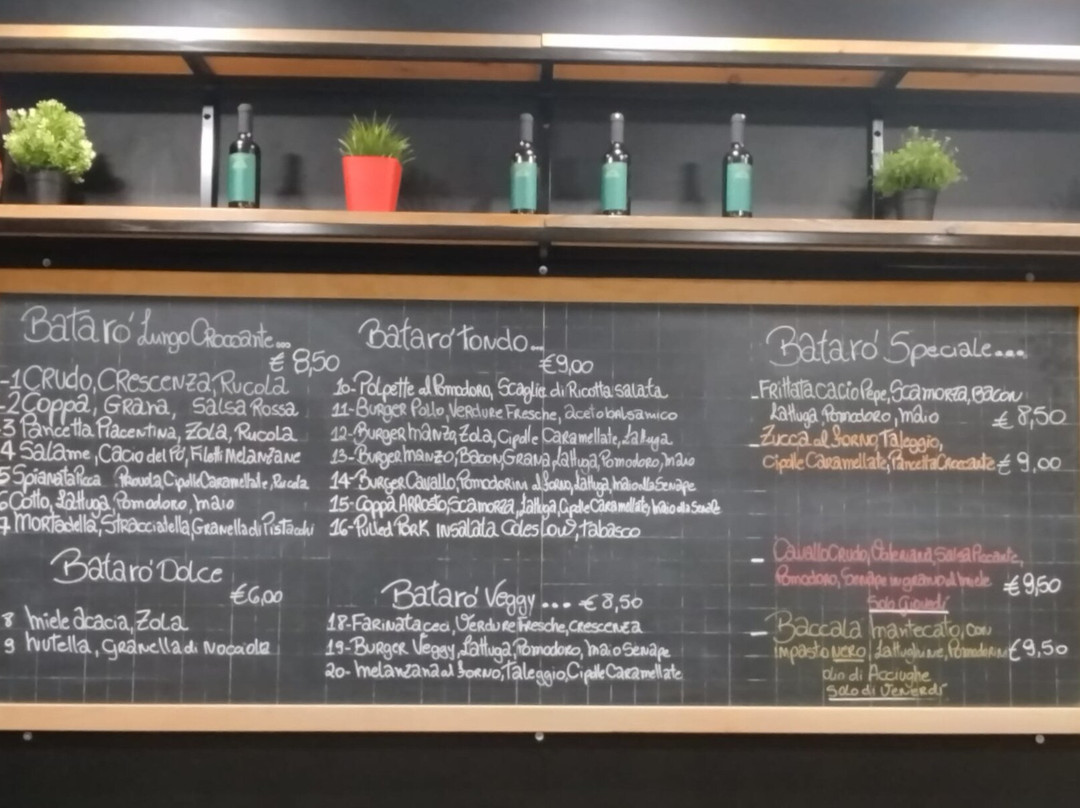 Batarò Lungo Croccante...
€ 8,50
-1 Crudo, Crescenza, Rucola
-2 Coppa, Grana, Salsa Rossa
-3 Pancetta Piacentina, Zola, Rucola
4 Salame, Cacio del Po, Filetti Melanzane
5 Spianata Provola Cipolle Caramellate, Rucola
6 Cotto, Lattuga, Pomodoro, Maio
7 Mortadella, Stracciatella, Granella di Pistacchi
Batarò Dolce
€6,00
8 Miele acacia, Zola
9 Nutella, Granella di Nocciole
Batarò Tondo...
€9,00
10- Polpette al Pomodoro, Scaglie di Ricotta Salata
11- Burger Pollo, Verdure Fresche, aceto balsamico
12- Burger Manzo, Zola, Cipolle Caramellate, Lattuga
13- Burger Manzo, Bacon, Grana, Lattuga, Pomodoro, Maio
14- Burger Cavallo, Pomodorini al Forno, Lattuga, maio alla Senape
15- Coppa Arrosto, Scamorza, Lattuga, Cipolle Caramellate, maio alla Senape
16- Pulled Pork insalata Coleslow, tabasco
Batarò Veggy... €8,50
18- Farinata ceci, Verdure Fresche, crescenza
19- Burger Veggy, Lattuga, Pomodoro, Maio Senape
20- Melanzana al Forno, Taleggio, Cipolle Caramellate
Batarò Speciale...
-Frittata Cacio Pepe, Scamorza, Bacon
Lattuga, Pomodoro, Maio € 8,50
- Zucca al Forno, Taleggio,
Cipolle Caramellate, Pancetta Croccante € 9,00
- Cavallo Crudo, Valeriana, Salsa Piccante,
Pomodoro, Senape in grani al Miele €9,50
Solo Giovedì
- Baccalà Mantecato, con
impasto nero, Lattughine, Pomodorini €9,50
olio di Acciughe
Solo di Venerdì